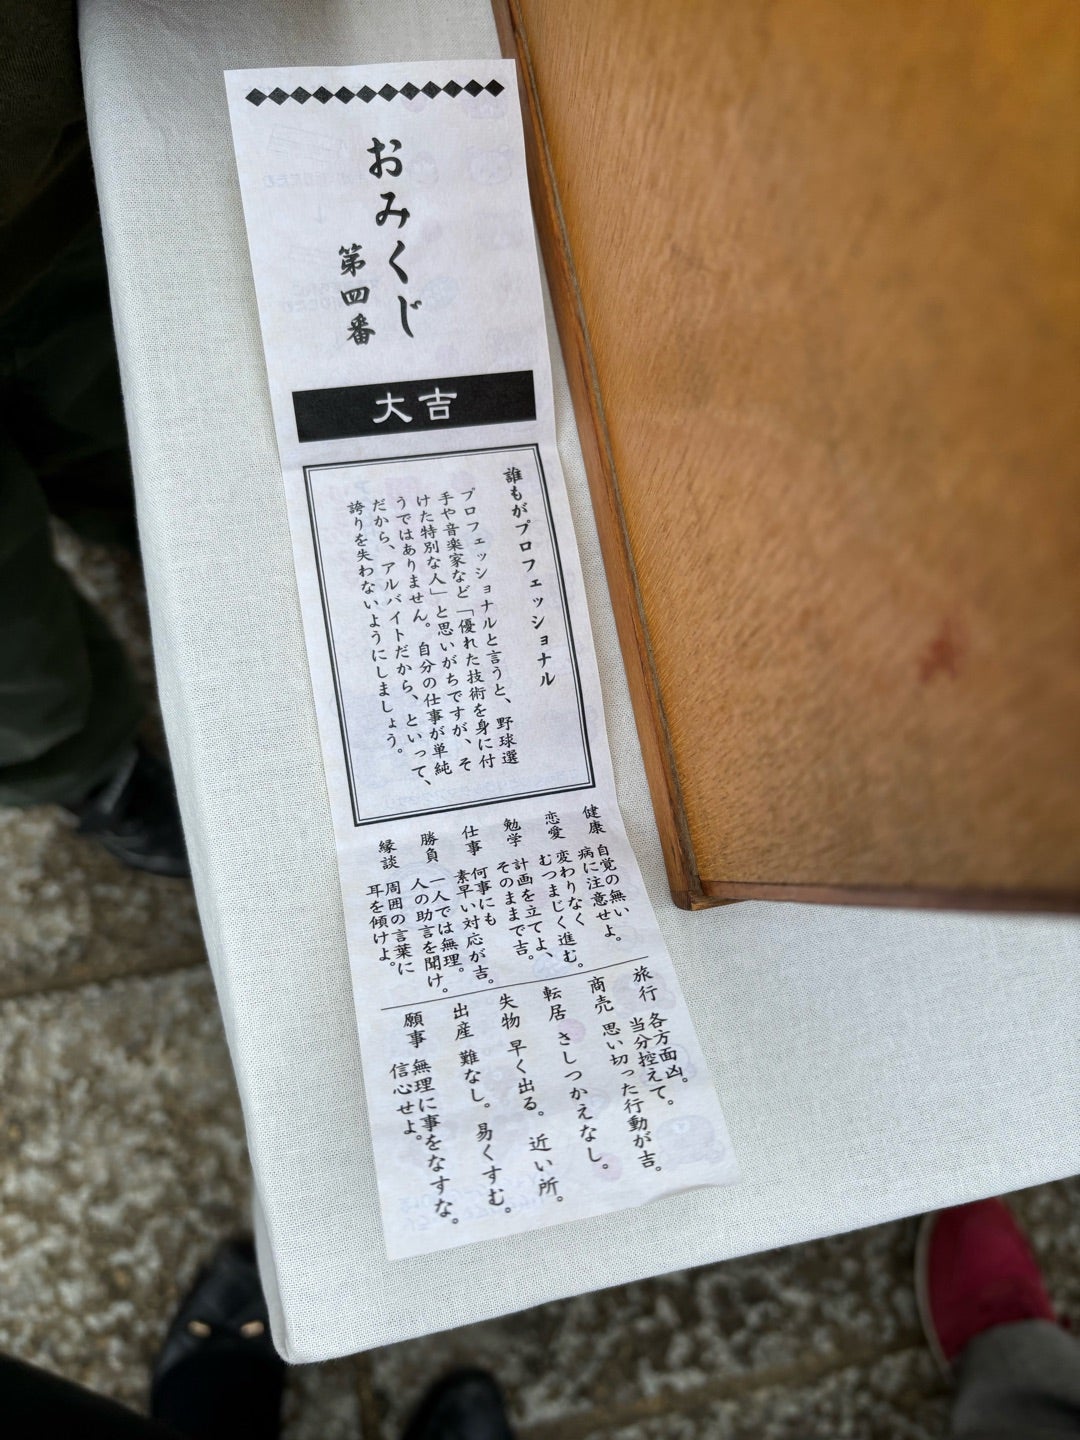 おみくじ
第四番
大吉
誰もがプロフェッショナル
プロフェッショナルと言うと、野球選
手や音楽家など「優れた技術を身に付
けた特別な人」と思いがちですが、そ
うではありません。自分の仕事が単純
だから、アルバイトだから、といって、
誇りを失わないようにしましょう。
健康 自覚の無い
病に注意せよ。
恋愛 変わりなく
むつまじく進む。
勉学 計画を立てよ、
そのままで吉。
仕事 何事にも
素早い対応が吉。
勝負 一人では無理。
人の助言を聞け。
縁談 周囲の言葉に
耳を傾けよ。
旅行 各方面凶。
当分控えて。
商売 思い切った行動が吉。
転居 さしつかえなし。
失物 早く出る。近い所。
出産 難なし。易くすむ。
願事 無理に事をなすな。
信心せよ。